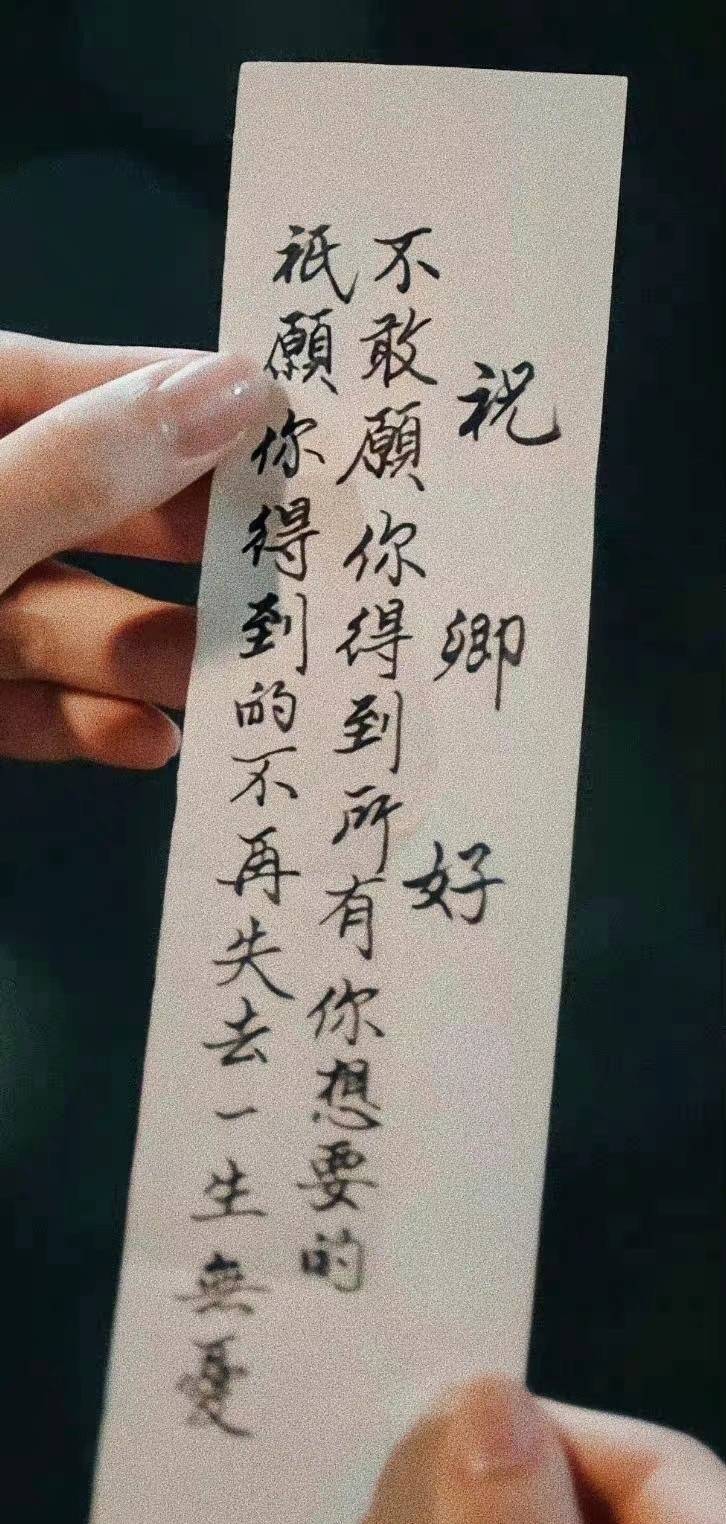 祝卿好
不敢願你得到所有你想要的
祇願你得到的不再失去一生無憂